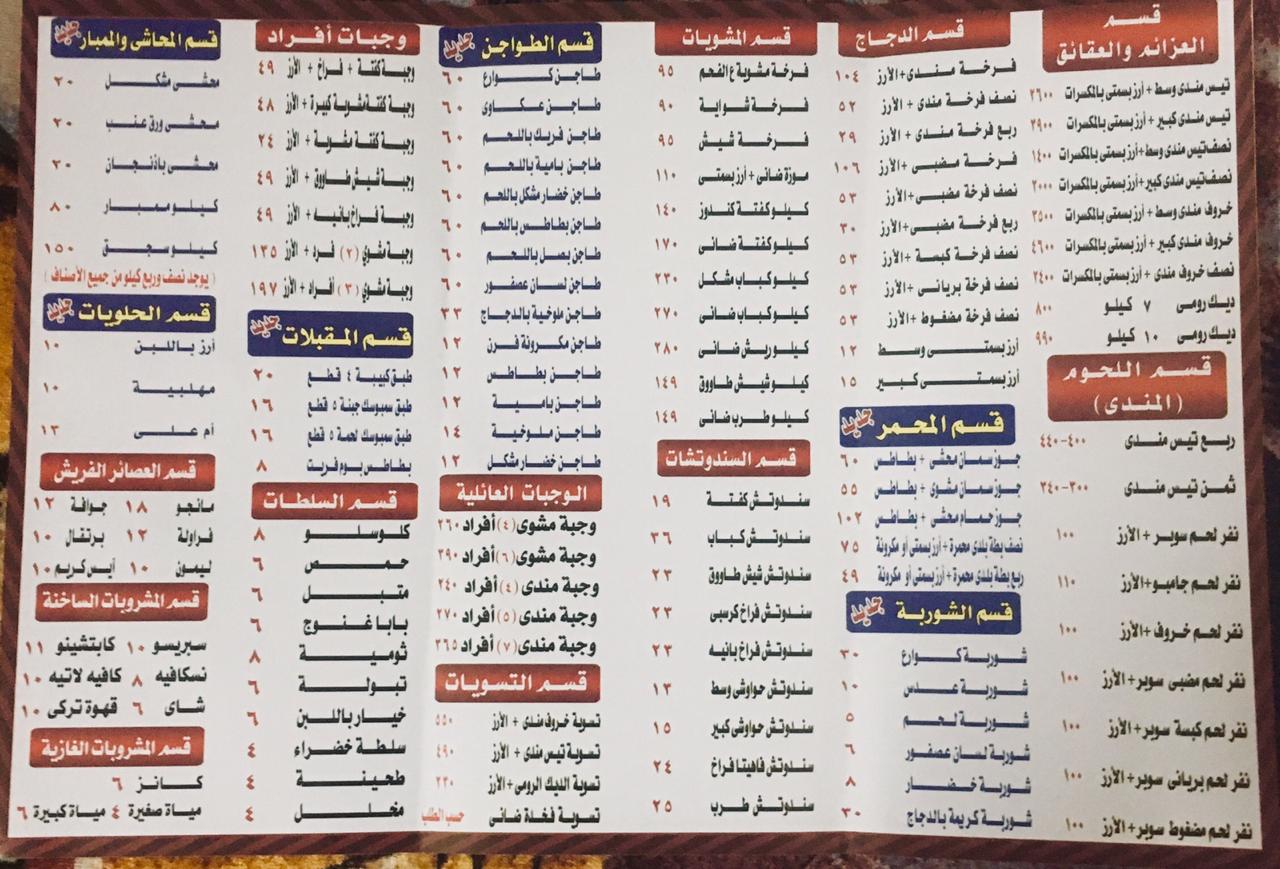 قسم
العزائم والعقائق
تيس مندى وسط + أرز بسمتى بالمكسرات ٢٦٠٠
تيس مندى كبير + أرز بسمتى بالمكسرات ٢٩٠٠
نصف تيس مندى وسط+أرز بسمتى بالمكسرات ١٤٠٠
نصف تيس مندى كبير+أرز بسمتى بالمكسرات ٢٠٠٠
خروف مندى وسط + أرز بسمتى بالمكسرات ٣٥٠٠
خروف مندى كبير + أرز بسمتى بالمكسرات ٤٦٠٠
نصف خروف مندى + أرز بسمتى بالمكسرات ٢٤٠٠
ديك رومى ٧ كيلو ٨٠٠
ديك رومى ١٠ كيلو ٩٩٠
قسم اللحوم
(المندى)
ربع تيس مندى ٤٠٠-٤٤٠
ثمن تيس مندى ٣٠٠-٣٤٠
نفر لحم سوبر + الأرز ١٠٠
نفر لحم جامبو+الأرز ١١٠
نفر لحم خروف +الأرز ١٠٠
نفر لحم مضبى سوبر+ الأرز ١٠٠
نفر لحم كبسة سوبر+ الأرز ١٠٠
نفر لحم بريانى سوبر+ الأرز ١٠٠
نفر لحم مضغوط سوبر+ الأرز ١٠٠
قسم الدجاج
فرخة مندى+الأرز ١٠٤
نصف فرخة مندى + الأرز ٥٢
ربع فرخة مندى + الأرز ٢٩
فرخة مضبى +الأرز ١٠٦
نصف فرخة مضبى+ الأرز ٥٣
ربع فرخة مضبى+ الأرز ٣٠
نصف فرخة كبسة + الأرز ٥٣
نصف فرخة بريانى + الأرز ٥٣
نصف فرخة مضغوط +الأرز ٥٣
أرز بسمتى وسط ١٢
أرز بسمتى كبير ١٥
قسم المحمر جديد
جوز سمان محشى + بطاطس ٦٠
جوز سمان مشوى + بطاطس ٥٥
جوز حمام محشى + بطاطس ١٠٢
نصف بطة بلدى محمرة + أرز بسمتى أو مكرونة ٧٥
ربع بطة بلدى محمرة + أرز بسمتى أو مكرونة ٤٩
قسم الشوربة جديد
شوربة كوارع ٣٠
شوربة عدس ١٠
شوربة لحم ٥
شوربة لسان عصفور ٦
شوربة خضار ٨
شوربة كريمة بالدجاج ٣٠
قسم المشويات
فرخة مشوية ع الفحم ٩٥
فرخة شواية ٩٠
فرخة شيش ٩٥
موزة ضانى + أرز بسمتى ١١٠
كيلو كفتة كندوز ١٤٠
كيلو كفتة ضانى ١٧٠
كيلو كباب مشكل ٢٣٠
كيلو كباب ضانى ٢٧٠
كيلو ريش ضانى ٢٨٠
كيلو شيش طاووق ١٤٩
كيلو طرب ضانى ١٤٩
قسم السندوتشات
سندوتش كفتة ١٩
سندوتش كباب ٣٦
سندوتش شيش طاووق ٢٣
سندوتش فراخ كرسبى ٢٣
سندوتش فراخ بانيه ٢٣
سندوتش حواوشى وسط ١٣
سندوتش حواوشى كبير ١٥
سندوتش فاهيتا فراخ ٢٤
سندوتش طرب ٢٥
قسم الطواجن جديد
طاجن كوارع ٦٠
طاجن عكاوى ٦٠
طاجن فريك باللحم ٦٠
طاجن بامية باللحم ٦٠
طاجن خضار مشكل باللحم ٦٠
طاجن بطاطس باللحم ٦٠
طاجن بصل باللحم ٦٠
طاجن لسان عصفور ٦٠
طاجن ملوخية بالدجاج ٣٣
طاجن مكرونة فرن ١٢
طاجن بطاطس ١٢
طاجن بامية ١٢
طاجن ملوخية ١٤
طاجن خضار مشكل ١٢
الوجبات العائلية
وجبة مشوى (٤) أفراد ٢٦٠
وجبة مشوى (٦) أفراد ٣٩٠
وجبة مندى (٤) أفراد ٢٤٠
وجبة مندى (٥) أفراد ٢٧٠
وجبة مندى (٧) أفراد ٣٦٥
قسم التسويات
تسوية خروف مندى + الأرز ٥٥٠
تسوية تيس مندى + الأرز ٤٩٠
تسوية الديك الرومى + الأرز ٢٣٠
تسوية فخدة ضانى حسب الطلب
وجبات أفراد
وجبة كفتة + فراخ + الأرز ٤٩
وجبة كفتة مشوية كبيرة + الأرز ٤٨
وجبة كفتة مشوية + الأرز ٢٤
وجبة شيش طاووق + الأرز ٤٩
وجبة فراخ بانيه + الأرز ٤٩
وجبة مشوي (٢) فرد + الأرز ١٣٥
وجبة مشوي (٣) أفراد + الأرز ١٩٧
قسم المقبلات جديد
طبق كبيبة ٤ قطع ٢٠
طبق سمبوسك جبنة ٥ قطع ١٦
طبق سمبوسك لحمة ٥ قطع ١٦
بطاطس بوم فريت ٨
قسم السلطات
كلوسلو ٨
حمص ٦
متبل ٦
بابا غنوج ٦
ثومية ٨
تبولة ٦
خيار باللبن ٦
سلطة خضراء ٤
طحينة ٤
مخلل ٤
قسم المحاشى والممبار جديد
محشى مشكل ٢٠
محشى ورق عنب ٢٠
محشى باذنجان ٢٠
كيلو ممبار ٨٠
كيلو سجق ١٥٠
( يوجد نصف وربع كيلو من جميع الأصناف )
قسم الحلويات جديد
أرز باللبن ١٠
مهلبية ١٠
أم على ١٣
قسم العصائر الفريش
مانجو ١٨ جوافة ١٢
فراولة ١٢ برتقال ١٠
ليمون ١٠ أيس كريم ١٠
قسم المشروبات الساخنة
سبريسو ١٠ كابتشينو ١١
نسكافيه ٨ كافيه لاتيه ١٠
شاى ٦ قهوة تركى ١٠
قسم المشروبات الغازية
كانز ٦
مياة صغيرة ٤ مياة كبيرة ٦